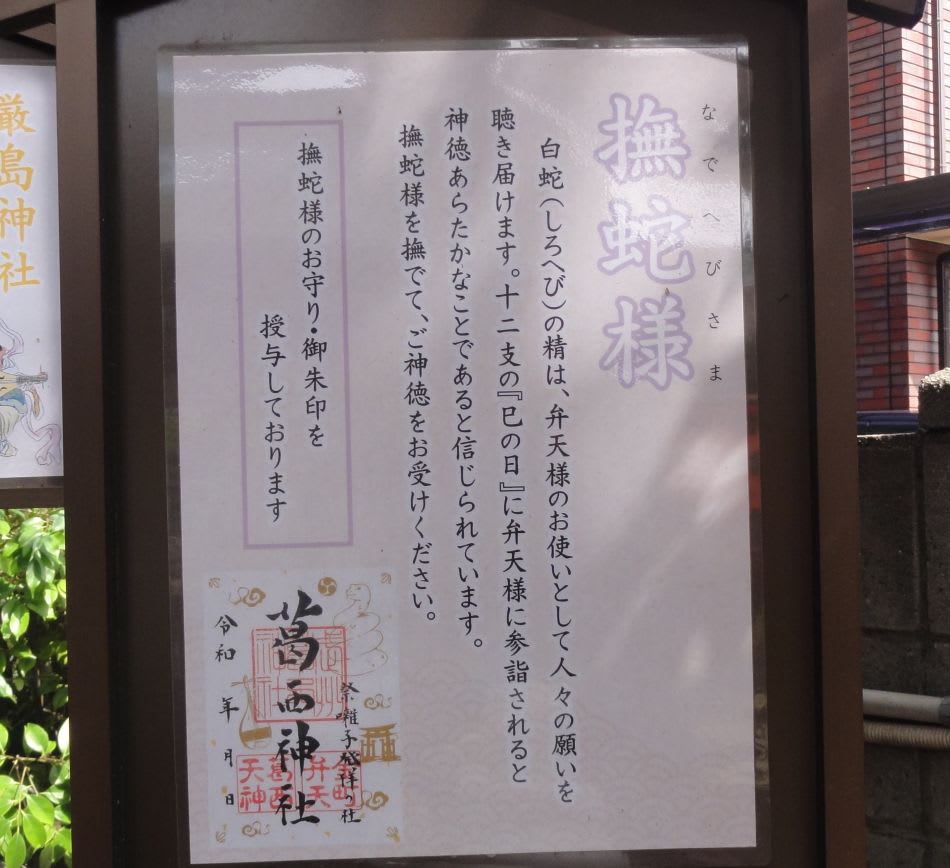 なでへびさま
撫蛇様
白蛇(しろへび)の精は、弁天様のお使いとして人々の願いを
聴き届けます。十二支の『巳の日』に弁天様に参詣されると
神徳あらたかなことであると信じられています。
撫蛇様を撫でて、ご神徳をお受けください。
撫蛇様のお守り・御朱印を
授与しております
祭囃子発祥の社
葛西神社
金町
弁天
葛西
天神
令和 年 月 日
厳島神社